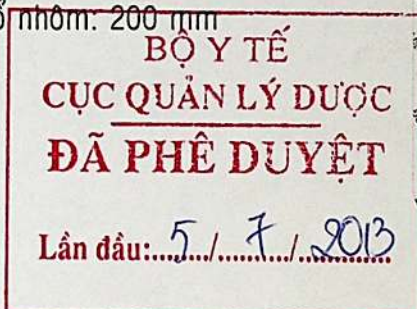 nhôm: 200 mm
BỘ Y TẾ
CỤC QUẢN LÝ DƯỢC
ĐÃ PHÊ DUYỆT
Lần đầu:.....5..../.....7..../....2013